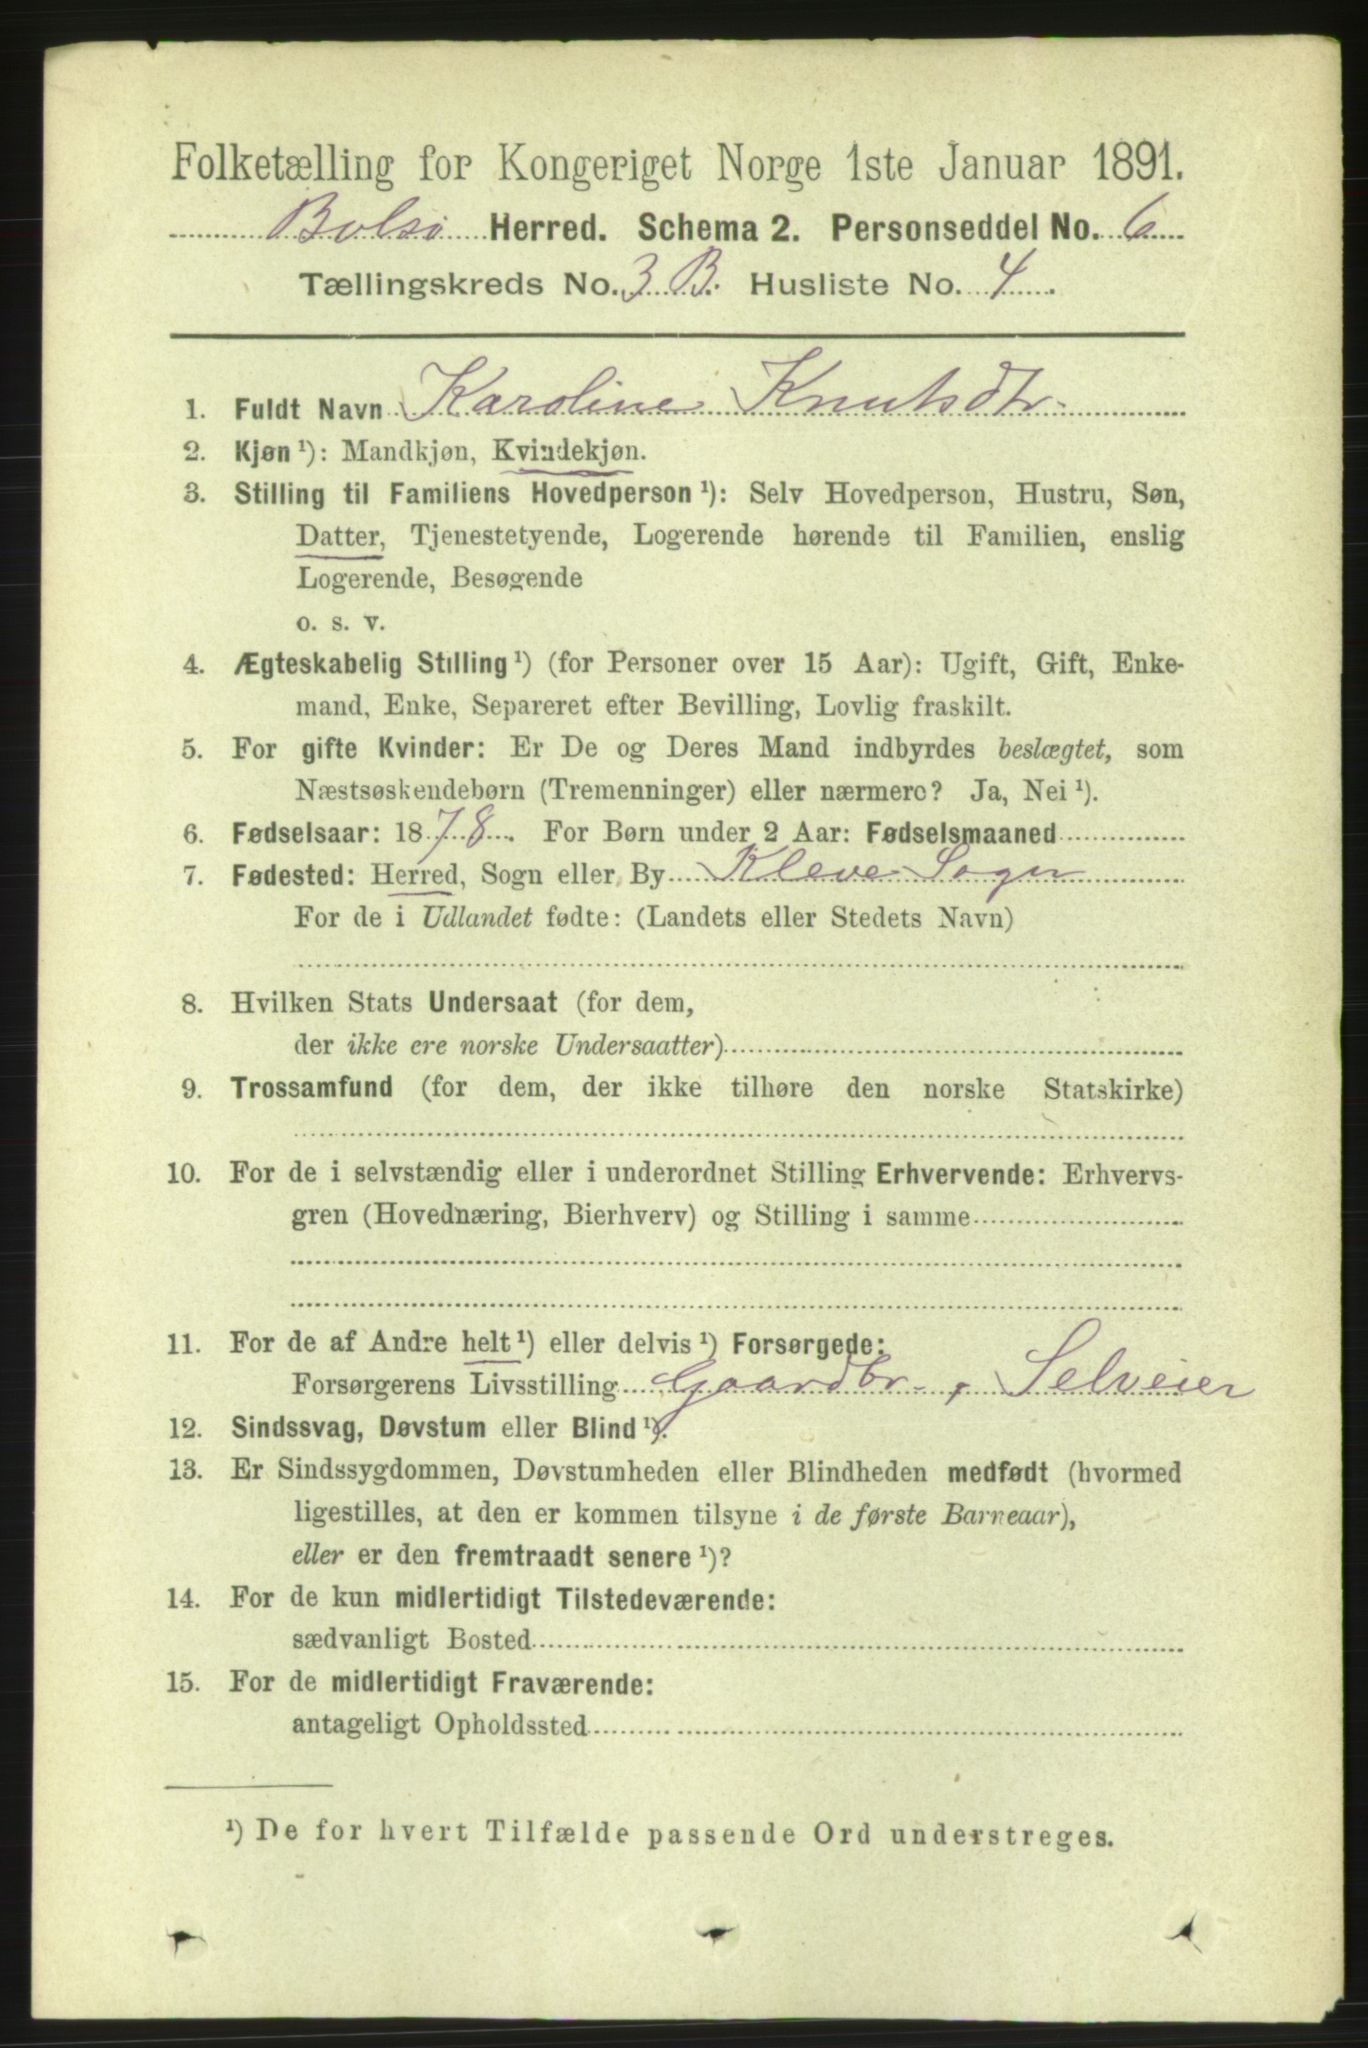 Folketælling for Kongeriget Norge 1ste Januar 1891.
Bolsø Herred. Schema 2. Personseddel No. 6
Tællingskreds No. 3 B. Husliste No. 4.
1. Fuldt Navn Karoline Knutsdtr.
2. Kjøn ¹): Mandkjøn, Kvindekjøn.
3. Stilling til Familiens Hovedperson ¹): Selv Hovedperson, Hustru, Søn,
Datter, Tjenestetyende, Logerende hørende til Familien, enslig
Logerende, Besøgende
o. s. v.
4. Ægteskabelig Stilling ¹) (for Personer over 15 Aar): Ugift, Gift, Enke-
mand, Enke, Separeret efter Bevilling, Lovlig fraskilt.
5. For gifte Kvinder: Er De og Deres Mand indbyrdes beslægtet, som
Næstsøskendebørn (Tremenninger) eller nærmere? Ja, Nei ¹).
6. Fødselsaar: 1878. For Børn under 2 Aar: Fødselsmaaned
7. Fødested: Herred, Sogn eller By Kleve Sogn
For de i Udlandet fødte: (Landets eller Stedets Navn)
8. Hvilken Stats Undersaat (for dem,
der ikke ere norske Undersaatter)
9. Trossamfund (for dem, der ikke tilhøre den norske Statskirke)
10. For de i selvstændig eller i underordnet Stilling Erhvervende: Erhvervs-
gren (Hovednæring, Bierhverv) og Stilling i samme
11. For de af Andre helt ¹) eller delvis ¹) Forsørgede:
Forsørgerens Livsstilling Gaardbr., Selveier
12. Sindssvag, Døvstum eller Blind ¹).
13. Er Sindssygdommen, Døvstumheden eller Blindheden medfødt (hvormed
ligestilles, at den er kommen tilsyne i de første Barneaar),
eller er den fremtraadt senere ¹)?
14. For de kun midlertidigt Tilstedeværende:
sædvanligt Bosted
15. For de midlertidigt Fraværende:
antageligt Opholdssted
¹) De for hvert Tilfælde passende Ord understreges.